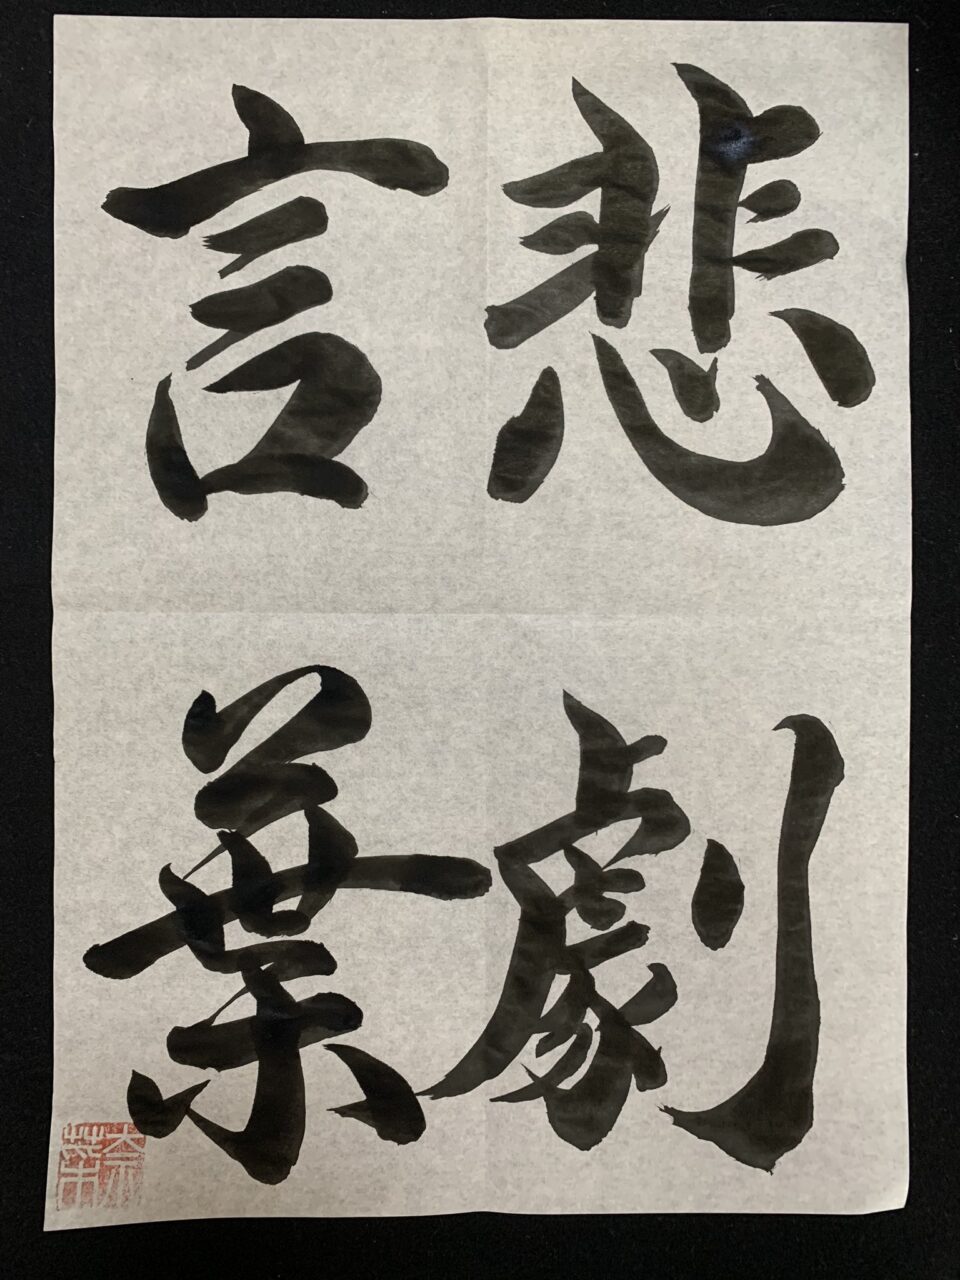 悲劇
言葉